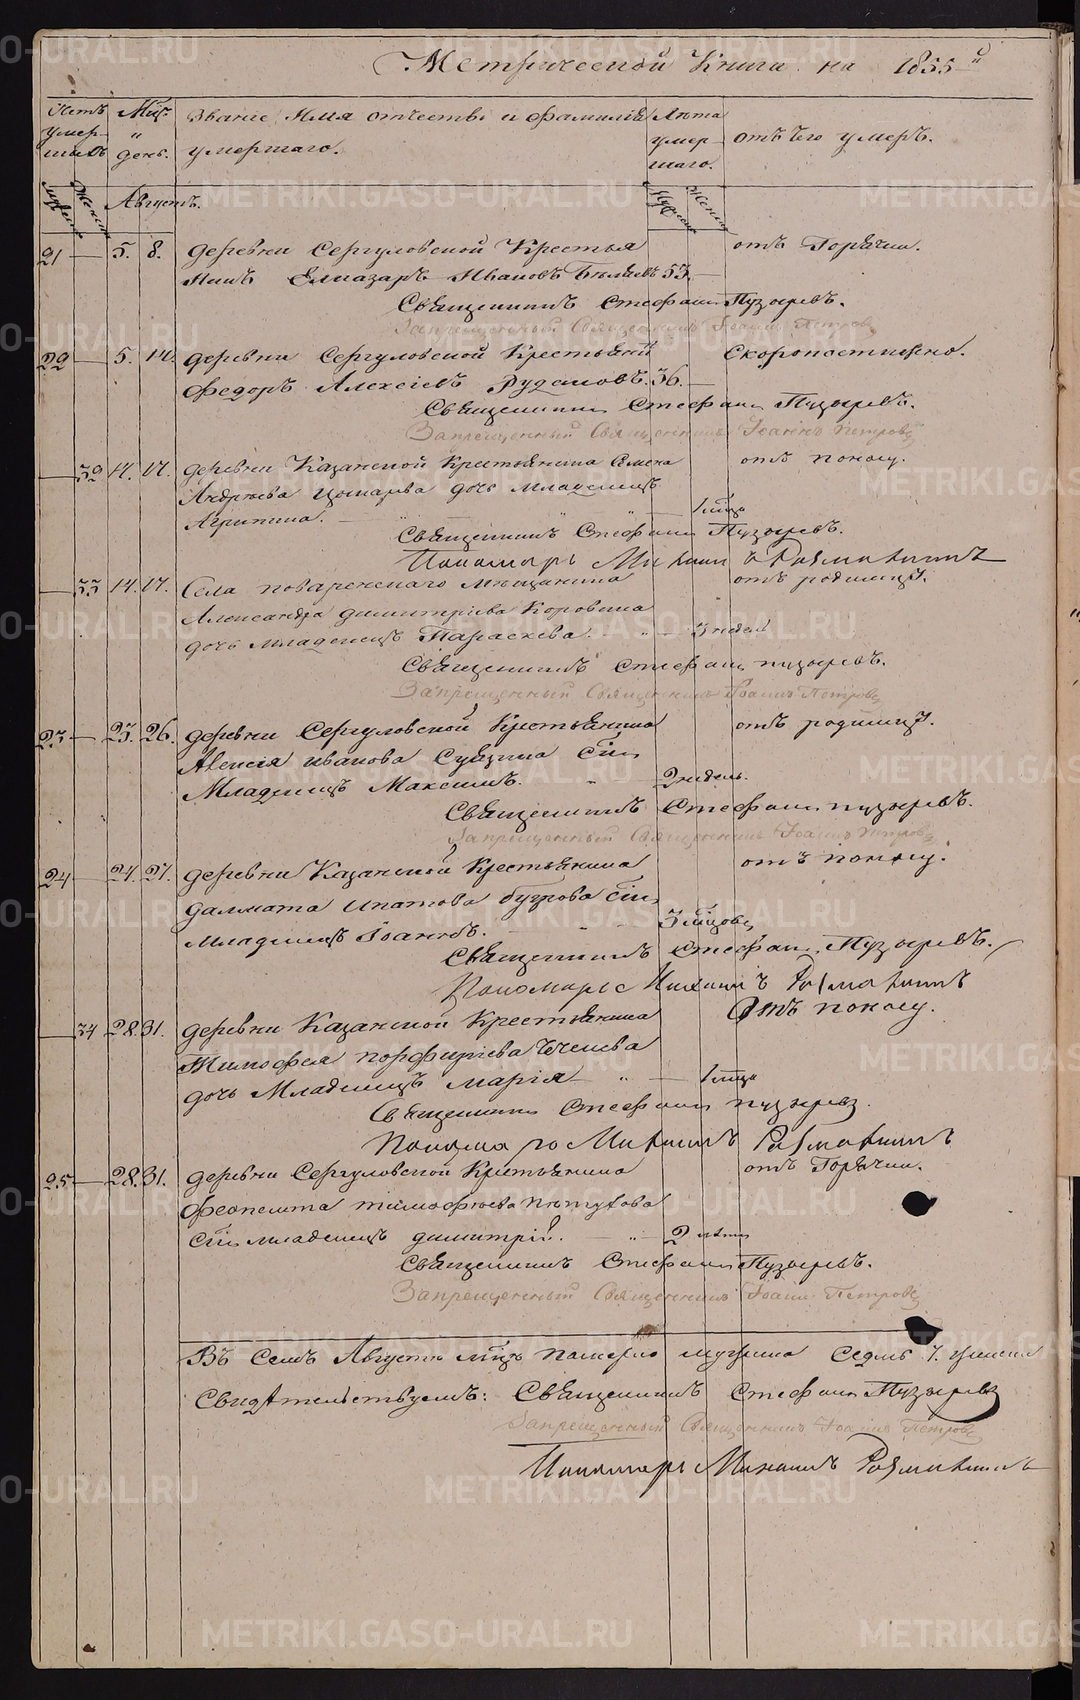 Метрической Книги на 1855й
Счетъ умер-шихъ
Мцъ и день.
Званіе Имя отчество и фамилія умершаго.
Лѣта умер-шаго.
отъ чего умеръ.
Августъ.
21 — 5. 8. деревни Сергуловской Крестья отъ Горячки.
нинъ Елиазаръ Ивановъ Бѣляевъ 53. —
Священникъ Стефанъ Пузыревъ.
Запрещенный Священникъ Іоаннъ Петровъ
22 — 5. 14. деревни Сергуловской Крестьянинъ Скоропостижно.
Федоръ Алексіевъ Рудаковъ. 36. —
Священникъ Стефанъ Пузыревъ.
Запрещенный Священникъ Іоаннъ Петровъ
— 32 14. 17. деревни Казанской Крестьянина Семена отъ поносу.
Андреева дочь младенецъ
Агрипина. — " — 1 мцъ
Священникъ Стефанъ Пузыревъ.
Пономарь Михаилъ
— 33 14. 17. Села мѣщанина отъ родимца.
Александра Димитріева Коровина
дочь младенецъ Параскева. " — 3 недѣл
Священникъ Стефанъ Пузыревъ.
Запрещенный Священникъ Іоаннъ Петровъ
23 — 23. 26. деревни Сергуловской Крестьянина отъ родимца.
Алексія Иванова сынъ
Младенецъ Максимъ. " 2 недѣль.
Священникъ Стефанъ Пузыревъ.
Запрещенный Священникъ Іоаннъ Петровъ
24 — 24. 27. деревни Казанской Крестьянина отъ поносу.
Далмата Ипатова сынъ
младенецъ Іоаннъ. — " — 3 мцовъ
Священникъ Стефанъ Пузыревъ.
Пономарь Михаилъ
— 34 28. 31. деревни Казанской Крестьянина Отъ поносу.
Тимофея Порфиріева
дочь Младенецъ Марія — " — 1 мцъ
Священникъ Стефанъ Пузыревъ
Пономарь Михаилъ
25 — 28. 31. деревни Сергуловской Крестьянина отъ Горячки.
Феопемпта Тимофеева Пѣтухова
сынъ младенецъ Димитрій. — " — 2 лѣтъ
Священникъ Стефанъ Пузыревъ.
Запрещенный Священникъ Іоаннъ Петровъ
Въ Семъ Августѣ мцѣ померло мужеска Седмь 7.
Свидѣтельствуемъ: Священникъ Стефанъ Пузыревъ
Запрещенный Священникъ Іоаннъ Петровъ
Пономарь Михаилъ
METRIKI.GASO-URAL.RU